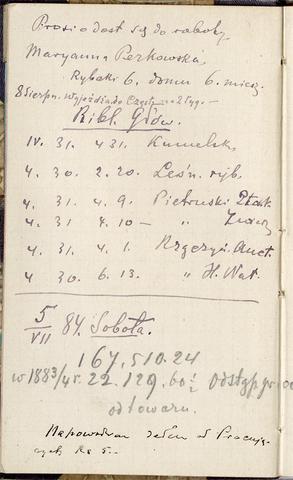 Prosi o dost się do roboty
Maryanna Perkowska,
Rybaki 6. domu 6. miesz
8 Sierpn. wyjeżdża do Częst — 2 tyg —
Bibl. Głów.
IV. 31. 4 31. Kumelsk.
4. 30. 2. 20. Leśn. ryb.
4. 31. 4. 9. Pietruski Ptak
4. 31 4. 10 — " Zwierz
4. 30. 4. 1. Rzączyń. Auct.
4 30. 6. 13. " H. Nat.
5/VII 84. Sobota.
167.510.24
w 1883/4 r. 22.129.60½
od towaru.